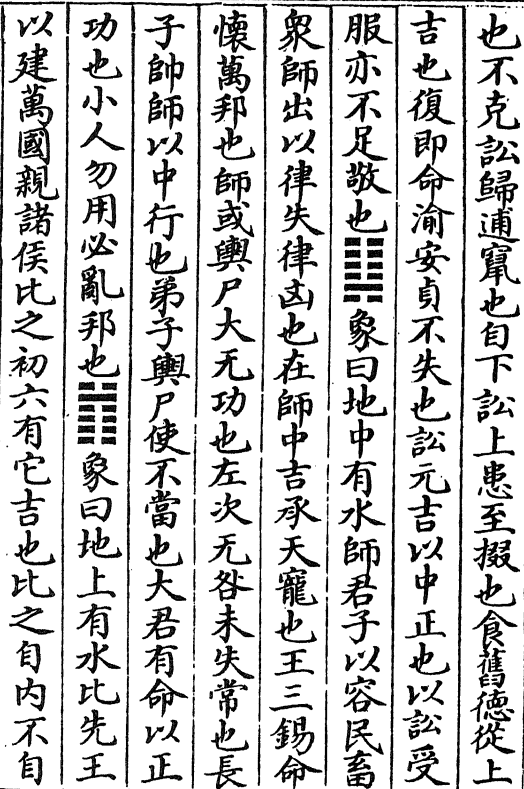 也不克訟歸逋竄也自下訟上患至掇也食舊德從上
吉也復即命渝安貞不失也訟元吉以中正也以訟受
服亦不足敬也䷆象曰地中有水師君子以容民畜
衆師出以律失律凶也在師中吉承天寵也王三錫命
懷萬邦也師或輿尸大无功也左次无咎未失常也長
子帥師以中行也弟子輿尸使不當也大君有命以正
功也小人勿用必亂邦也䷇象曰地上有水比先王
以建萬國親諸侯比之初六有它吉也比之自内不自